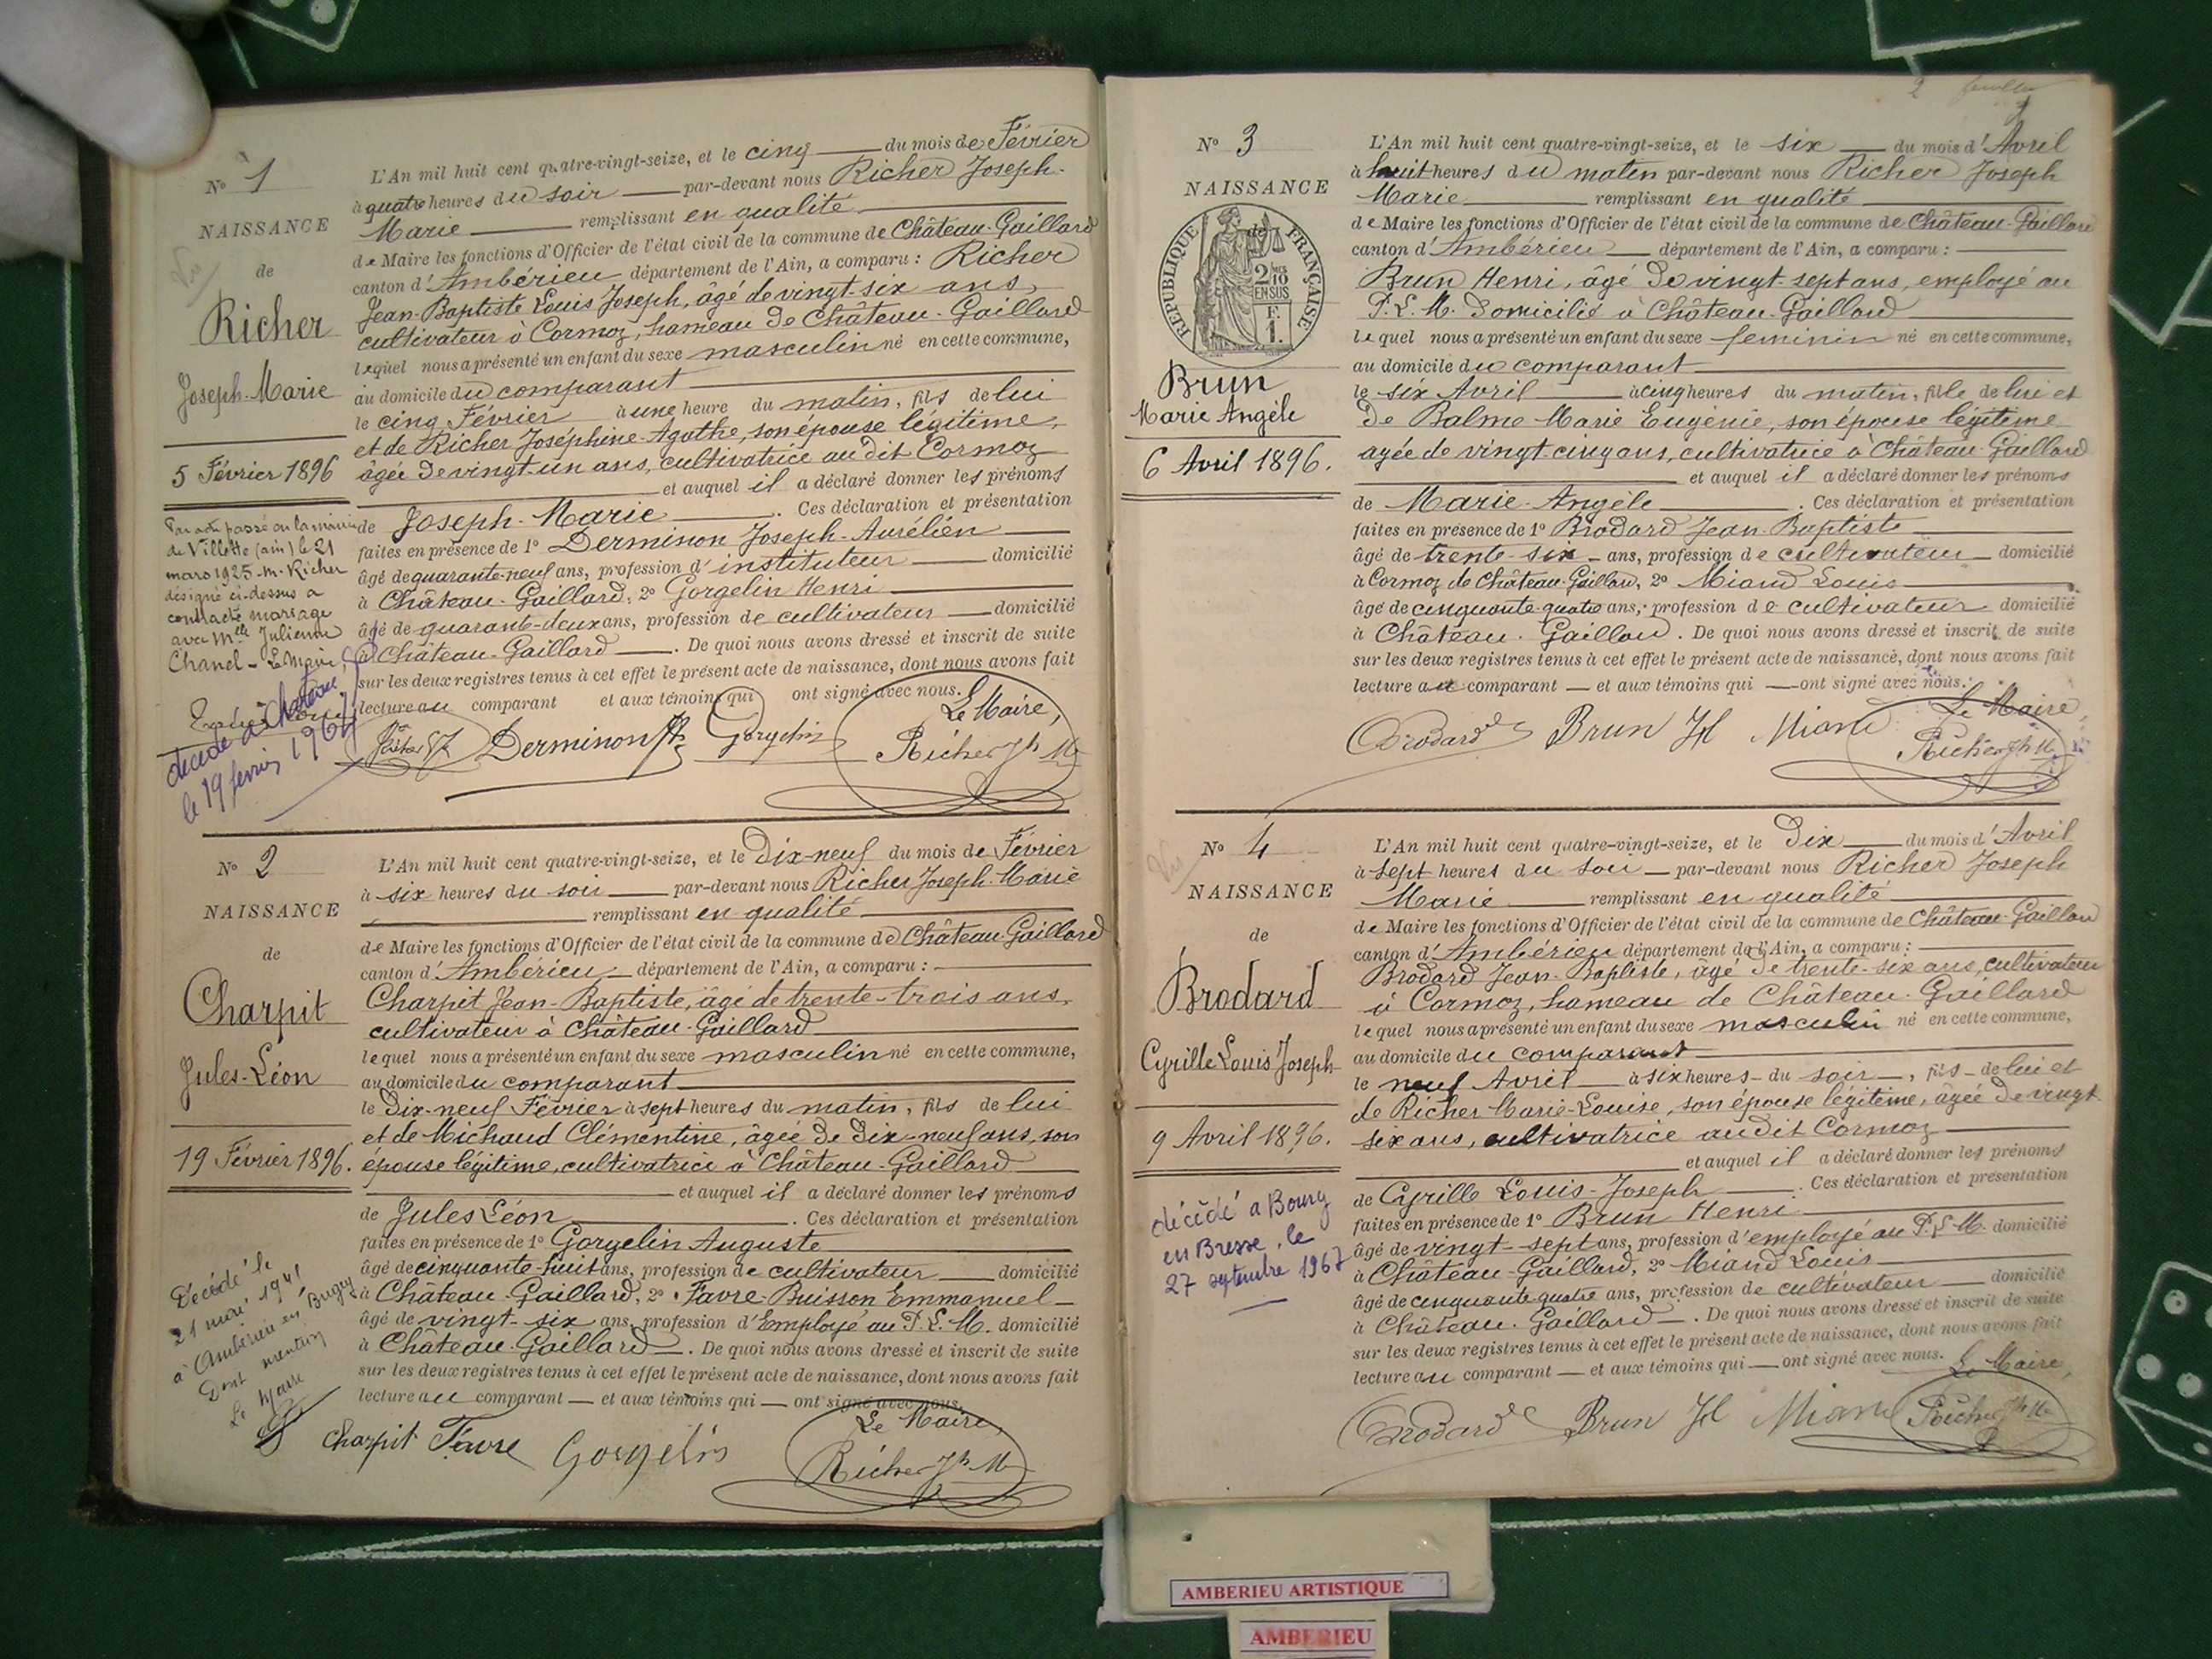 Nº 1
NAISSANCE
de
Richer
Joseph-Marie
5 Février 1896
Par acte passé en la mairie
de Villette (ain) le 21
mars 1925 - M. Richer
désigné ci-dessus a
contracté mariage
avec Mlle Julienne
Chanel - Le Maire,
décédé à Château
le 19 février 1964
L'An mil huit cent quatre-vingt-seize, et le cinq du mois de Février
à quatre heures du soir par-devant nous Richer Joseph-
Marie remplissant en qualité
de Maire les fonctions d'Officier de l'état civil de la commune de Château-Gaillard
canton d'Ambérieu département de l'Ain, a comparu : Richer
Jean-Baptiste Louis Joseph, âgé de vingt-six ans,
cultivateur à Cormoz, hameau de Château-Gaillard
lequel nous a présenté un enfant du sexe masculin né en cette commune,
au domicile du comparant
le cinq Février à une heure du matin, fils de lui
et de Richer Joséphine-Agathe, son épouse légitime,
âgée de vingt-un ans, cultivatrice au dit Cormoz
et auquel il a déclaré donner les prénoms
de Joseph-Marie . Ces déclaration et présentation
faites en présence de 1º Derminon Joseph-Aurélien
âgé de quarante-neuf ans, profession d'instituteur domicilié
à Château-Gaillard, 2º Gorgelin Henri
âgé de quarante-deux ans, profession de cultivateur domicilié
à Château-Gaillard . De quoi nous avons dressé et inscrit de suite
sur les deux registres tenus à cet effet le présent acte de naissance, dont nous avons fait
lecture au comparant et aux témoins qui ont signé avec nous.
Le Maire,
Derminon Gorgelin Richer Jh Me
Nº 2
NAISSANCE
de
Charpit
Jules-Léon
19 Février 1896.
Décédé le
21 mai 1941
à Ambérieu en Bugey
Dont mention
Le Maire
L'An mil huit cent quatre-vingt-seize, et le Dix-neuf du mois de Février
à six heures du soir par-devant nous Richer Joseph-Marie
remplissant en qualité
de Maire les fonctions d'Officier de l'état civil de la commune de Château-Gaillard
canton d'Ambérieu département de l'Ain, a comparu :
Charpit Jean-Baptiste, âgé de trente-trois ans,
cultivateur à Château-Gaillard
lequel nous a présenté un enfant du sexe masculin né en cette commune,
au domicile du comparant
le Dix-neuf Février à sept heures du matin, fils de lui
et de Michaud Clémentine, âgée de Dix-neuf ans, son
épouse légitime, cultivatrice à Château-Gaillard
et auquel il a déclaré donner les prénoms
de Jules Léon . Ces déclaration et présentation
faites en présence de 1º Gorgelin Auguste
âgé de cinquante-huit ans, profession de cultivateur domicilié
à Château-Gaillard, 2º Favre-Buisson Emmanuel
âgé de vingt-six ans, profession d'Employé au P. L. M. domicilié
à Château-Gaillard . De quoi nous avons dressé et inscrit de suite
sur les deux registres tenus à cet effet le présent acte de naissance, dont nous avons fait
lecture au comparant et aux témoins qui ont signé avec nous.
Le Maire,
Charpit Favre Gorgelin Richer Jh Me
2
Nº 3
NAISSANCE
de
REPUBLIQUE FRANÇAISE
2/10 EN SUS
F.
1.
Brun
Marie Angèle
6 Avril 1896.
L'An mil huit cent quatre-vingt-seize, et le six du mois d'Avril
à huit heures du matin par-devant nous Richer Joseph
Marie remplissant en qualité
de Maire les fonctions d'Officier de l'état civil de la commune de Château-Gaillard
canton d'Ambérieu département de l'Ain, a comparu :
Brun Henri, âgé de vingt-sept ans, employé au
P. L. M. domicilié à Château-Gaillard
lequel nous a présenté un enfant du sexe féminin né en cette commune,
au domicile du comparant
le six Avril à cinq heures du matin, fille de lui et
de Balme Marie Eugénie, son épouse légitime
agée de vingt-cinq ans, cultivatrice à Château-Gaillard
et auquel il a déclaré donner les prénoms
de Marie-Angèle . Ces déclaration et présentation
faites en présence de 1º Brodard Jean-Baptiste
âgé de trente-six ans, profession de cultivateur domicilié
à Cormoz de Château-Gaillard, 2º Miand Louis
âgé de cinquante-quatre ans, profession de cultivateur domicilié
à Château-Gaillard . De quoi nous avons dressé et inscrit de suite
sur les deux registres tenus à cet effet le présent acte de naissance, dont nous avons fait
lecture au comparant et aux témoins qui ont signé avec nous.
Le Maire,
Brodard Brun Miand Richer Jh Me
Nº 4
NAISSANCE
de
Brodard
Cyrille Louis Joseph
9 Avril 1896.
décédé a Bourg
en Bresse, le
27 septembre 1967
L'An mil huit cent quatre-vingt-seize, et le Dix du mois d'Avril
à sept heures du soir par-devant nous Richer Joseph
Marie remplissant en qualité
de Maire les fonctions d'Officier de l'état civil de la commune de Château-Gaillard
canton d'Ambérieu département de l'Ain, a comparu :
Brodard Jean-Baptiste, âgé de trente-six ans, cultivateur
à Cormoz, hameau de Château-Gaillard
lequel nous a présenté un enfant du sexe masculin né en cette commune,
au domicile du comparant
le neuf Avril à six heures du soir, fils de lui et
de Richer Marie-Louise, son épouse légitime, âgée de vingt
six ans, cultivatrice audit Cormoz
et auquel il a déclaré donner les prénoms
de Cyrille Louis-Joseph . Ces déclaration et présentation
faites en présence de 1º Brun Henri
âgé de vingt-sept ans, profession d'employé au P. L. M. domicilié
à Château-Gaillard, 2º Miand Louis
âgé de cinquante quatre ans, profession de cultivateur domicilié
à Château-Gaillard . De quoi nous avons dressé et inscrit de suite
sur les deux registres tenus à cet effet le présent acte de naissance, dont nous avons fait
lecture au comparant et aux témoins qui ont signé avec nous.
Le Maire,
Brodard Brun Miand Richer Jh Me
AMBERIEU ARTISTIQUE
AMBERIEU